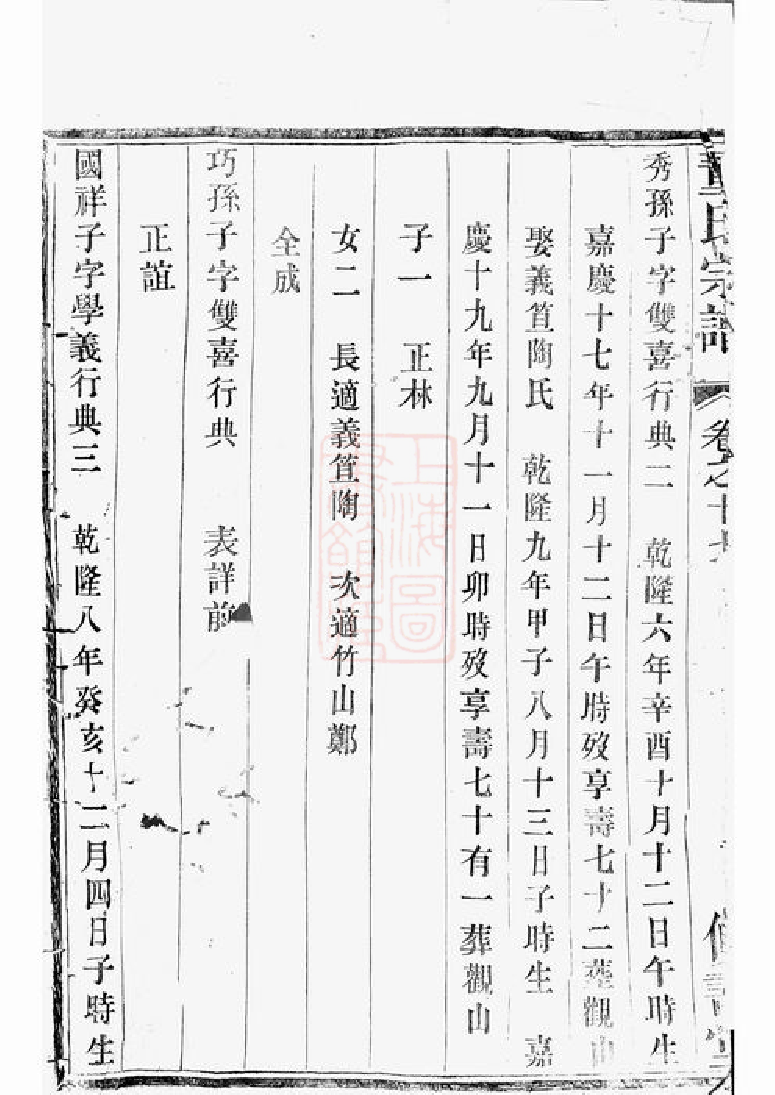 董氏宗譜 卷之十七
秀孫子字雙喜行典二 乾隆六年辛酉十月十二日午時生
嘉慶十七年十一月十二日午時歿享壽七十二葬觀山
娶義笪陶氏 乾隆九年甲子八月十三日子時生 嘉
慶十九年九月十一日卯時歿享壽七十有一葬觀山
子一 正林
女二 長適義笪陶 次適竹山鄭
全成
巧孫子字雙喜行典 表詳前
正誼
國祥子字學義行典三 乾隆八年癸亥十二月四日子時生
上海圖書館藏